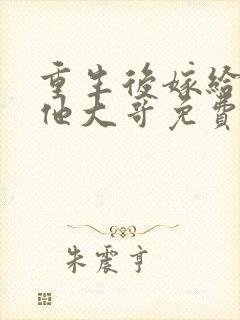 重生後嫁給
他大哥免費
朱震亨